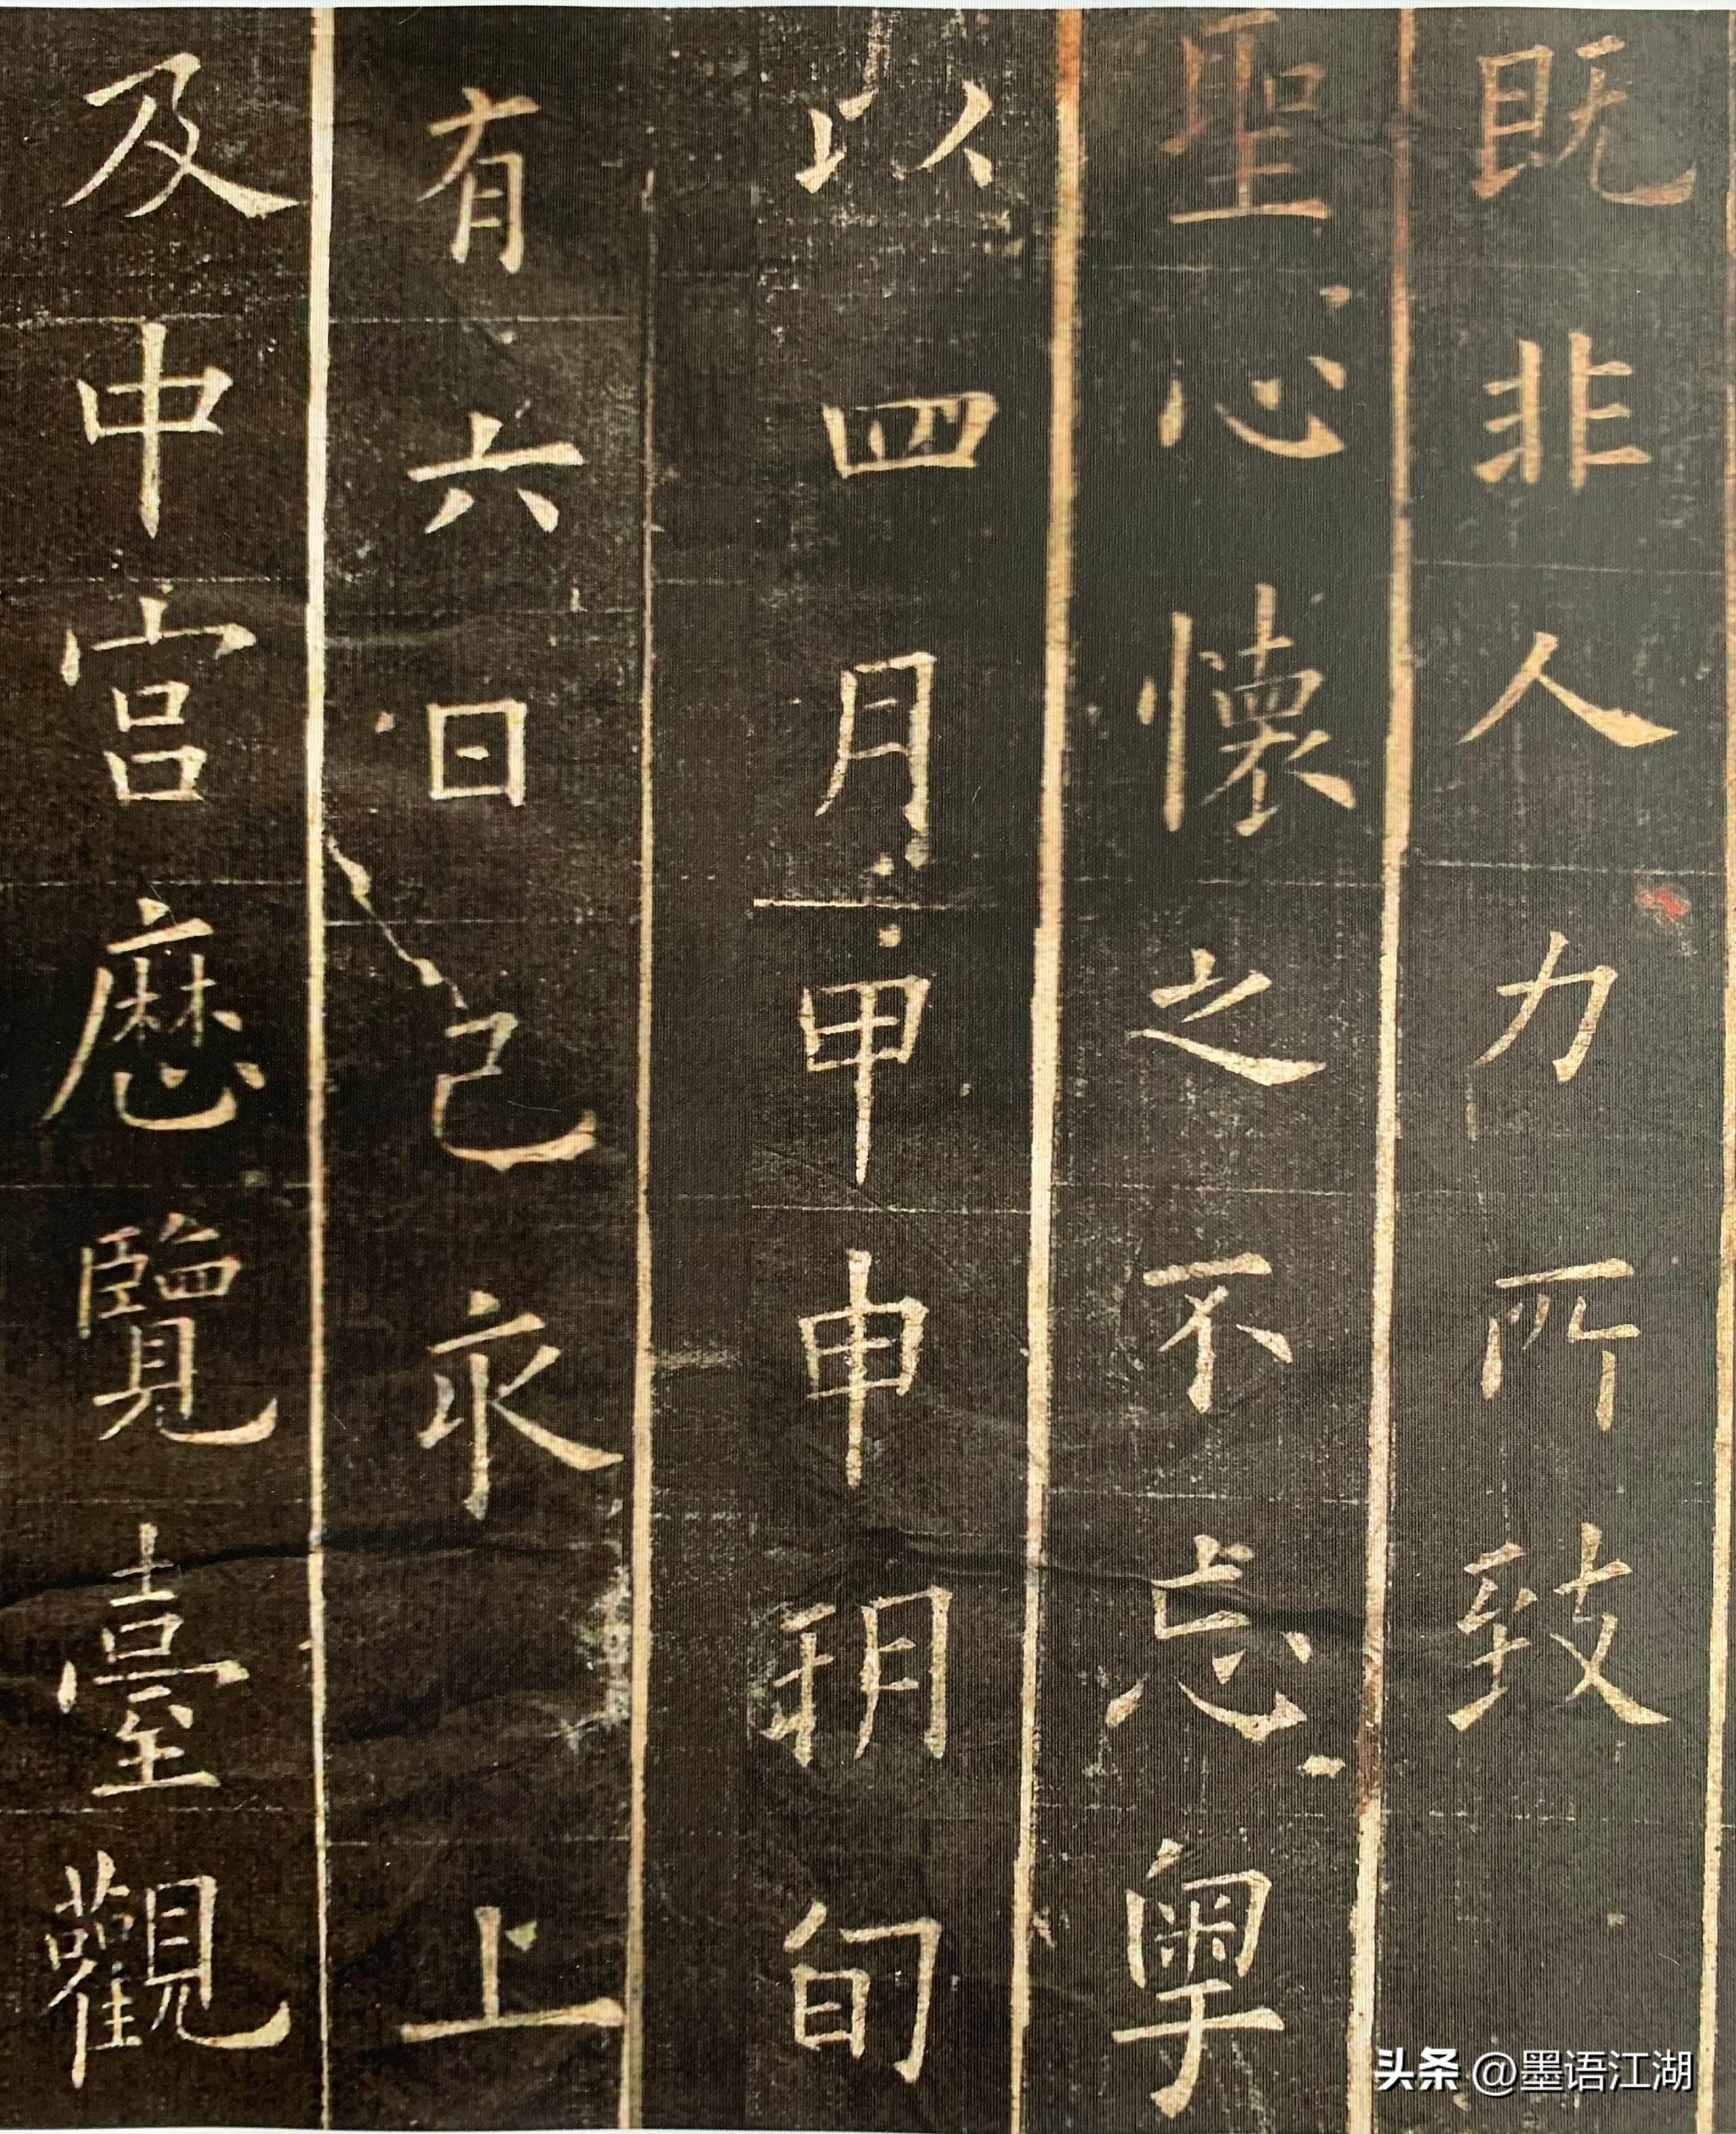 既非人力所致
聖心懷之不忘粵
以四月甲申朔旬
有六日己亥上
及中宮歷覽臺觀
头条 @墨语江湖